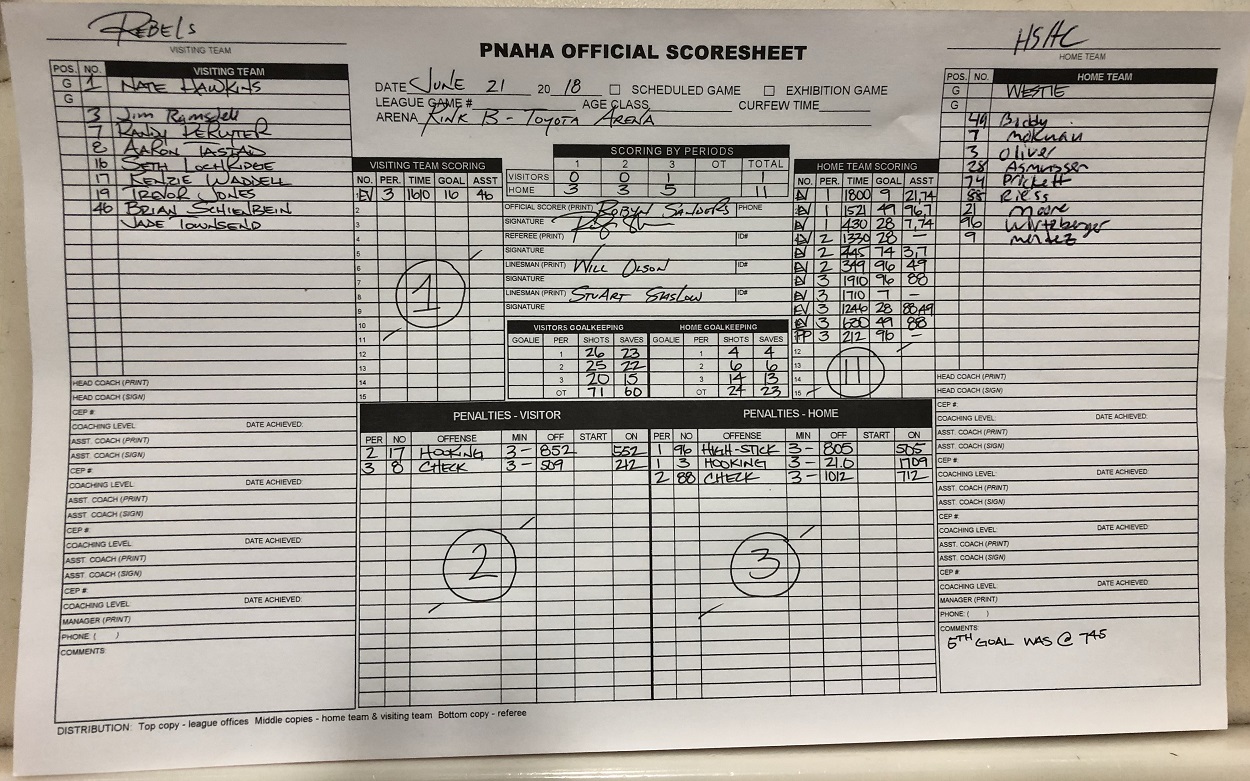 REBELS
VISITING TEAM
HSHC
HOME TEAM
PNAHA OFFICIAL SCORESHEET
DATE JUNE 21 20 18 SCHEDULED GAME EXHIBITION GAME
LEAGUE GAME # AGE CLASS CURFEW TIME
ARENA RINK B - TOYOTA ARENA
POS. NO. VISITING TEAM
G 1 NATE HAWKINS
G
3 Jim Ramsdell
7 RANDY
8 AARON TASTAD
16 SETH LOCHRIDGE
17 KENZIE WADDELL
19 TREVOR JONES
46 BRIAN SCHIENBEIN
JADE TOWNSEND
HEAD COACH (PRINT)
HEAD COACH (SIGN)
CEP #
COACHING LEVEL DATE ACHIEVED:
ASST. COACH (PRINT)
ASST. COACH (SIGN)
CEP #
COACHING LEVEL: DATE ACHIEVED:
ASST. COACH (PRINT)
ASST. COACH (SIGN)
CEP #
COACHING LEVEL DATE ACHIEVED:
ASST. COACH (PRINT)
ASST. COACH (SIGN)
CEP #
COACHING LEVEL DATE ACHIEVED:
MANAGER (PRINT)
PHONE ( )
COMMENTS:
VISITING TEAM SCORING
NO. PER. TIME GOAL ASST
EV 3 1610 16 46
2
3
4
5
6
7
8
9
10
11
12
13
14
15
1
SCORING BY PERIODS
1 2 3 OT TOTAL
VISITORS 0 0 1 1
HOME 3 3 5 11
OFFICIAL SCORER (PRINT) ROBYN SANDERS PHONE
SIGNATURE
REFEREE (PRINT) ID#
SIGNATURE
LINESMAN (PRINT) WILL OLSON ID#
SIGNATURE
LINESMAN (PRINT) STUART ID#
SIGNATURE
VISITORS GOALKEEPING HOME GOALKEEPING
GOALIE PER SHOTS SAVES GOALIE PER SHOTS SAVES
1 26 23 1 4 4
2 25 22 2 6 6
3 20 15 3 14 13
OT 71 60 OT 24 23
HOME TEAM SCORING
NO. PER. TIME GOAL ASST
EV 1 1800 9 21,74
EV 1 1521 49 96,7
EV 1 430 28 7,74
EV 2 1330 28 -
EV 2 445 74 3,7
EV 2 349 96 49
EV 3 1910 96 88
EV 3 1710 7 -
EV 3 1246 28 88,49
EV 3 630 49 88
PP 3 212 96 -
12
13
14
15
11
POS. NO. HOME TEAM
G WESTIE
G
49 Biddy
7
3 Oliver
28 Asmussen
74 Prickett
88 Riess
21 Moore
96
9 Mendez
HEAD COACH (PRINT)
HEAD COACH (SIGN)
CEP #:
COACHING LEVEL: DATE ACHIEVED:
ASST. COACH (PRINT)
ASST. COACH (SIGN)
CEP #:
COACHING LEVEL: DATE ACHIEVED:
ASST. COACH (PRINT)
ASST. COACH (SIGN)
CEP #
COACHING LEVEL DATE ACHIEVED:
ASST. COACH (PRINT)
ASST. COACH (SIGN)
CEP #
COACHING LEVEL DATE ACHIEVED:
MANAGER (PRINT)
PHONE: ( )
COMMENTS:
5TH GOAL WAS @ 745
PENALTIES - VISITOR
PER NO OFFENSE MIN OFF START ON
2 17 HOOKING 3 - 852 552
3 8 CHECK 3 - 509 212
2
PENALTIES - HOME
PER NO OFFENSE MIN OFF START ON
1 96 HIGH-STICK 3 - 805 505
1 3 HOOKING 3 - 21.0 1709
2 88 CHECK 3 - 1012 712
3
DISTRIBUTION: Top copy - league offices Middle copies - home team & visiting team Bottom copy - referee